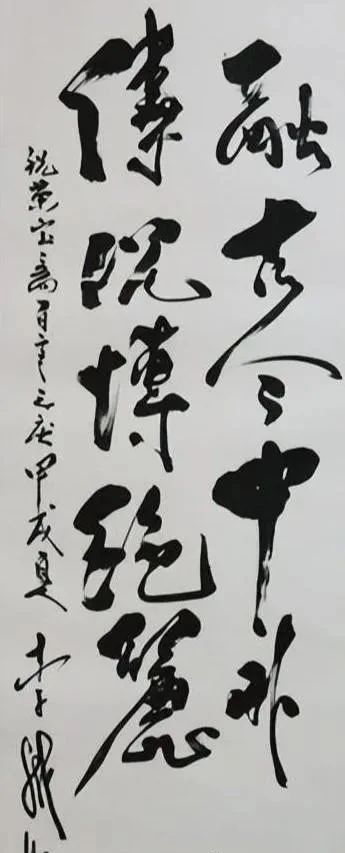 融古今中外
臻沉博絕麗
祝荣宝斋百年之庆 甲戌夏
李铎